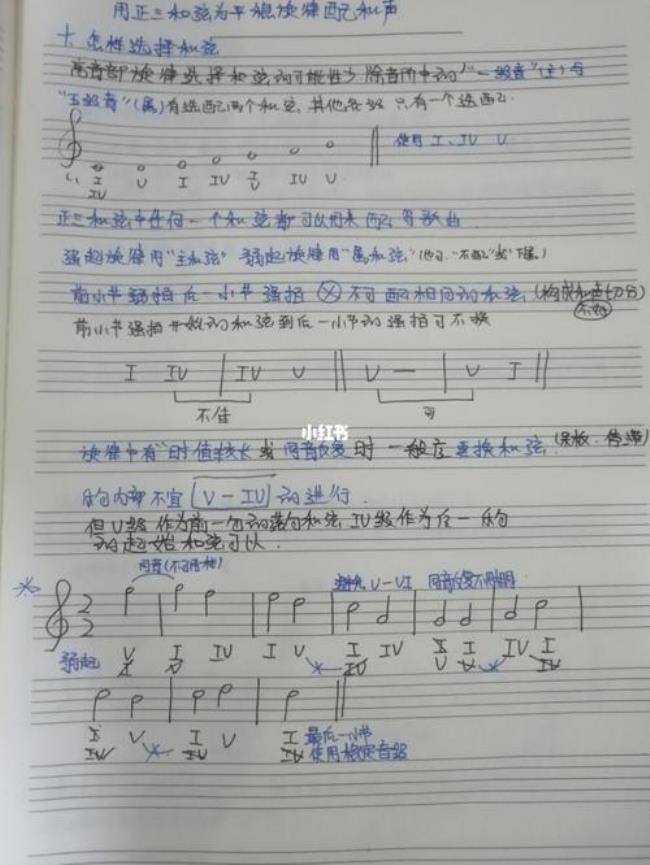 用正三和弦为平稳旋律配和声
十、怎样选择和弦
高音部旋律选择和弦的可能性少除音阶中的"一级音"(主)与
"五级音"(属)有选配两个和弦,其他各级只有一个选配.
使用 I、IV V
I V I IV I IV V
IV V
正三和弦中任何一个和弦都可以用来配弱起.
强起旋律用"主和弦" 弱起旋律用"属和弦"(也可."不配"或"下属.)
前小节弱拍后一小节强拍 ⊗ 不可配相同的和弦,(构成和声切分)
不好
前小节强拍开始的和弦到后一小节的强拍可不换
I IV | IV V || V — | V I ||
不佳 可
小红书
旋律中有"时值较长 或 同音反复 时 一般应 更换和弦.(呆板.停滞)
乐句内部不宜 V — IV 的进行.
但V级作为前一句的落句和弦 IV级作为后一乐句
的起始和弦可以.
同音(不可用神)
避免 V-VI 同音反复不用
2
2
弱起 V I IV I V I IV I I IV I
IV V V IV
I V I V I 最后一小节
IV IV IV 使用稳定音级